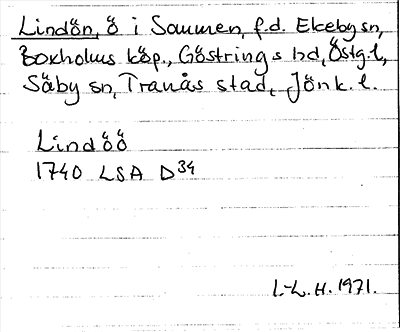 Lindön, ö i Sommen, f.d. Ekeby sn,
Boxholms köp., Göstrings hd, Östg.l,
Säby sn, Tranås stad, Jönk. l.
Lindöö
1740 LSA D34
L-L. H. 1971.